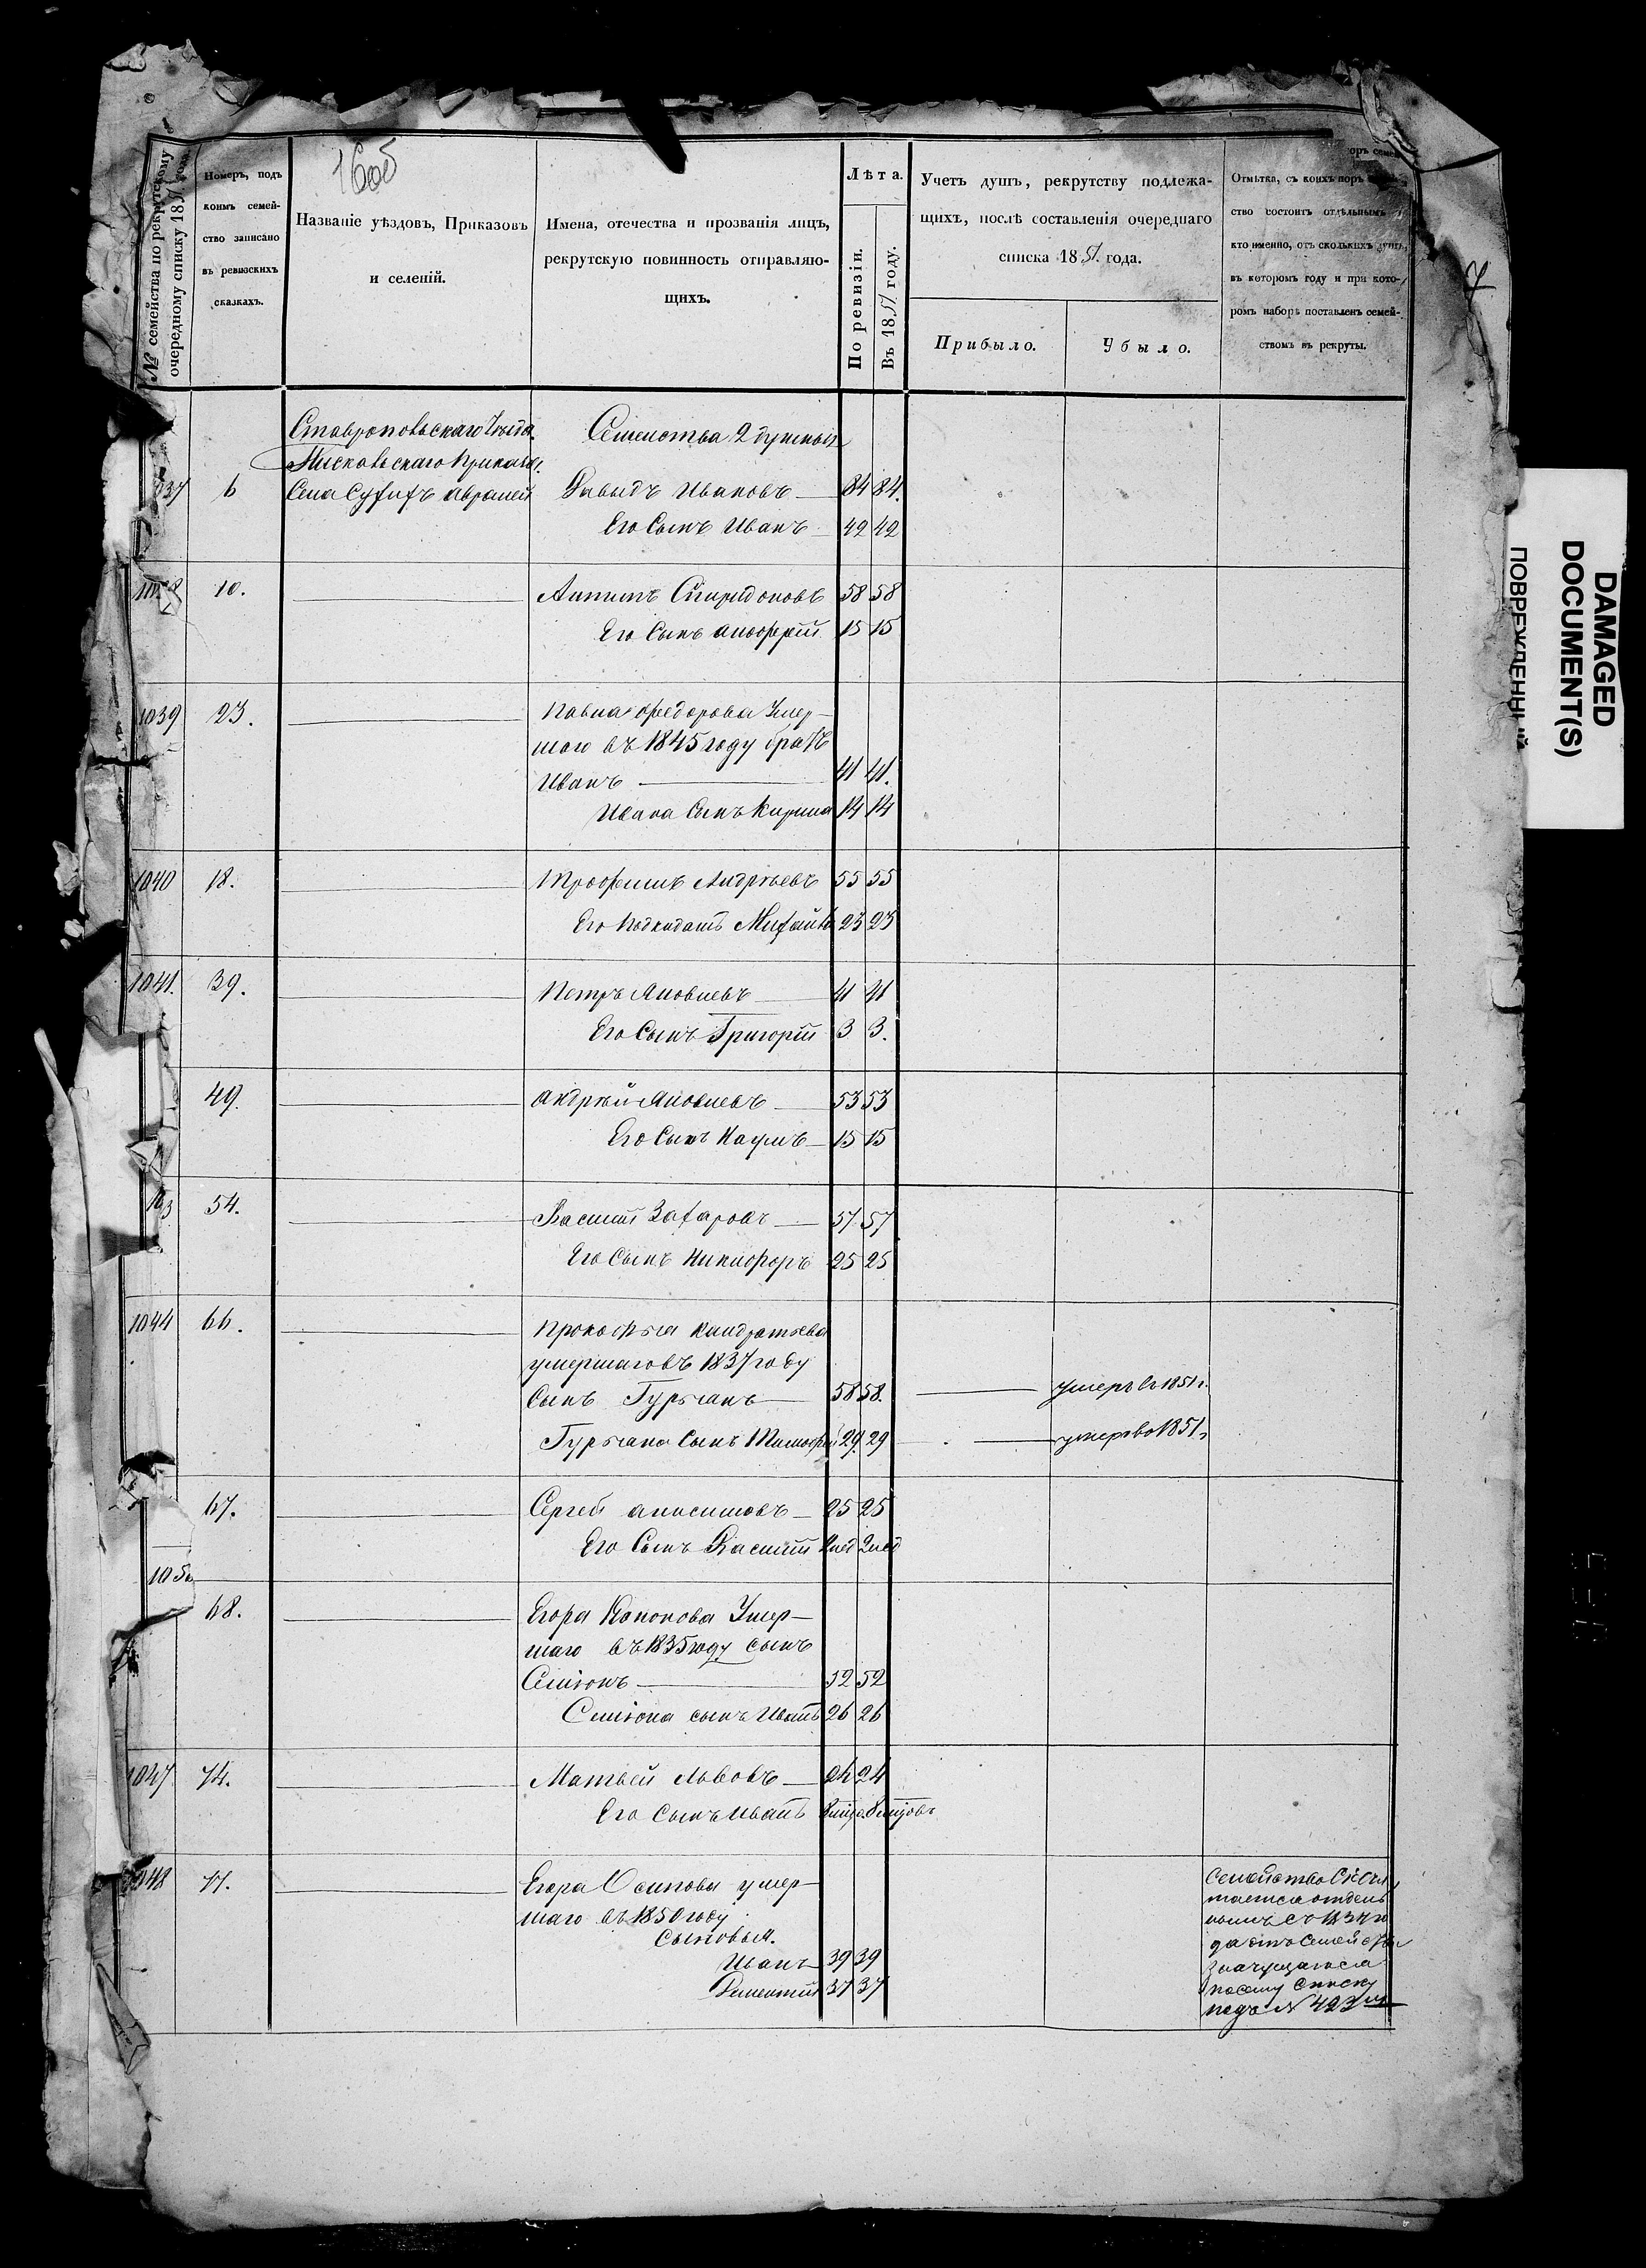 160б
№ семейства по рекрутскому
очередному списку 1851 года
Номеръ, подъ
коимъ семей-
ство записано
въ ревизскихъ
сказкахъ.
Названіе уѣздовъ, Приказовъ
и селеній.
Имена, отечества и прозванія лицъ,
рекрутскую повинность отправляю-
щихъ.
Лѣта.
По ревизіи.
Въ 1851 году.
Учетъ душъ, рекрутству подлежа-
щихъ, послѣ составленія очереднаго
списка 1851 года.
Прибыло.
Убыло.
Отмѣтка, съ коихъ поръ
ство состоитъ отдѣльнымъ
кто именно, отъ сколькихъ душъ,
въ которомъ году и при кото-
ромъ наборѣ поставленъ семей-
ствомъ въ рекруты.
Ставропольскаго уѣзда
Приказа.
Семейства 2 душныя
037 6 Села Давыдъ Ивановъ 84 84.
Его Сынъ Иванъ 42 42
10. Антипъ Спиридоновъ 58 58
Его Сынъ 15 15
1039 23. Павла Федорова Умер-
шаго въ 1845 году братъ
Иванъ 41 41.
Ивана Сынъ Кирила 14 14
1040 18. Трофимъ Андрѣевъ 55 55
Его Подкидышъ Михайла 23 23
1041. 39. Петръ Яковлевъ 41 41
Его Сынъ Григорій 3 3.
49. Андрѣй Яковлевъ 53 53
Его Сынъ Наумъ 15 15
54. Василій Захаровъ 57 57
Его Сынъ Никифоръ 25 25
1044 66. Прокофья Кандратьева
умершаго въ 1837 году
Сынъ Гурьянъ 58 58. умеръ въ 1851 г.
Гурьяна Сынъ Тимофей 29. 29 умеръ во 1851 г
67. Сергей Анисимовъ 25 25
Его Сынъ Василій 2нед 2нед
68. Егора Кононова Умер-
шаго въ 1835 году сынъ
Семіонъ 52 52
Семіона сынъ Иванъ 26 26
1047 74. Матвей Львовъ 24 24
Его Сынъ Иванъ
1048 77. Егора Осипова умер-
шаго въ 1850 году
Сыновья.
Иванъ 39 39
Дементій 37 37
Семейство Сіе Счи
тается отдель
нымъ съ 1834 го
да отъ Семейства
значущагося
посему Списку
подъ № 423мъ
DAMAGED
DOCUMENT(S)
ПОВРЕЖДЕННЫЙ